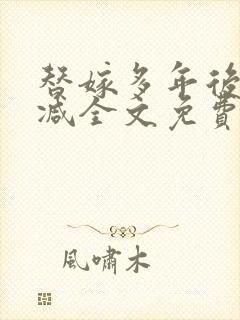 替嫁多年後
减全文免費
風嘯木